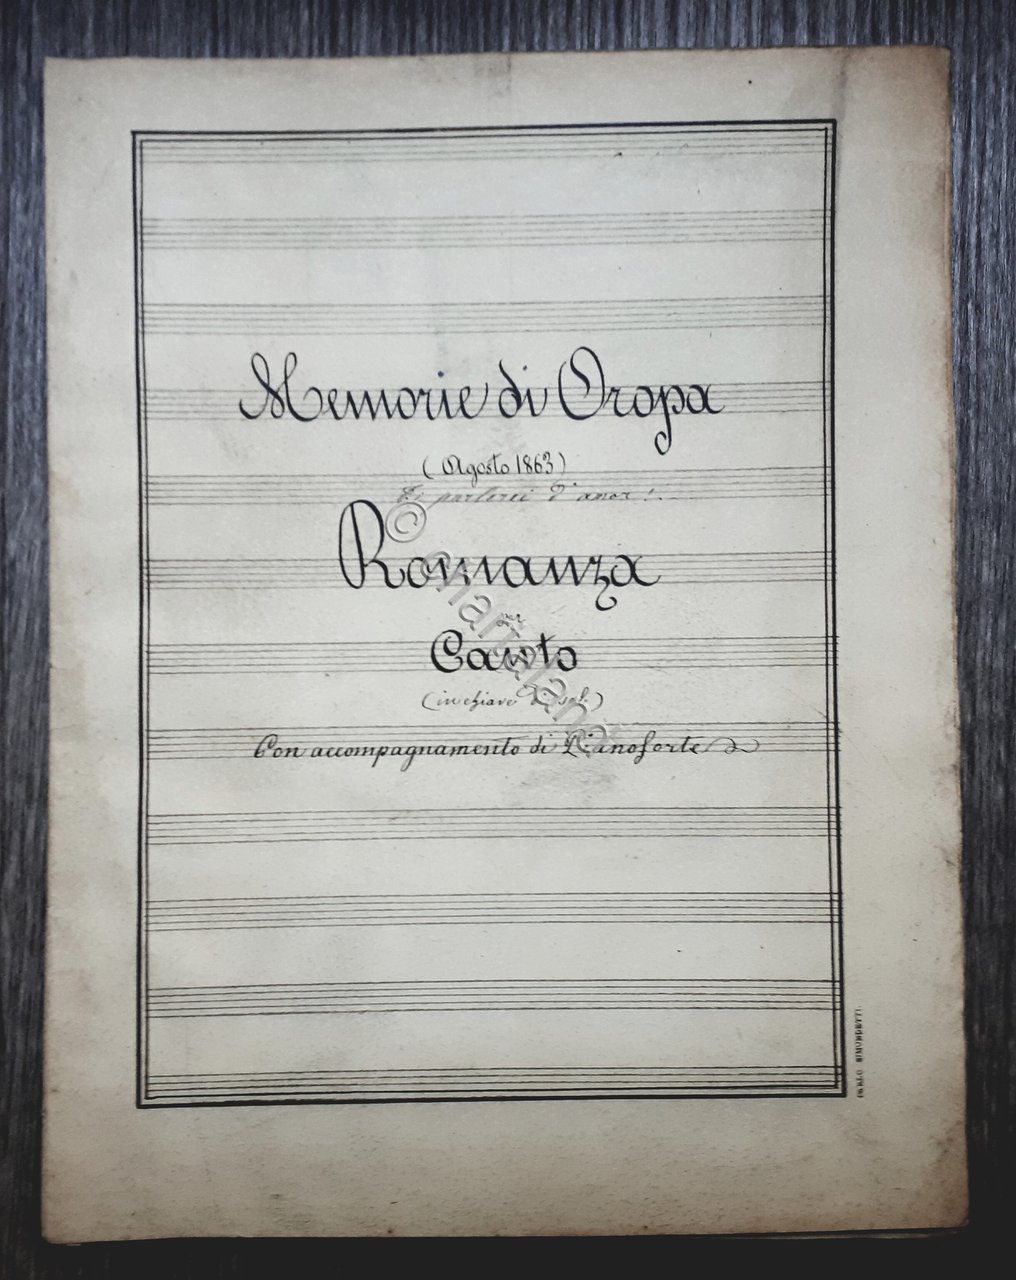 Memorie di Oropa
(Agosto 1863)
parlerei d'amor!
Romanza
per
Canto
(in chiave di sol.)
Con accompagnamento di Pianoforte
© chartaland
CARLO SIMONDETTI